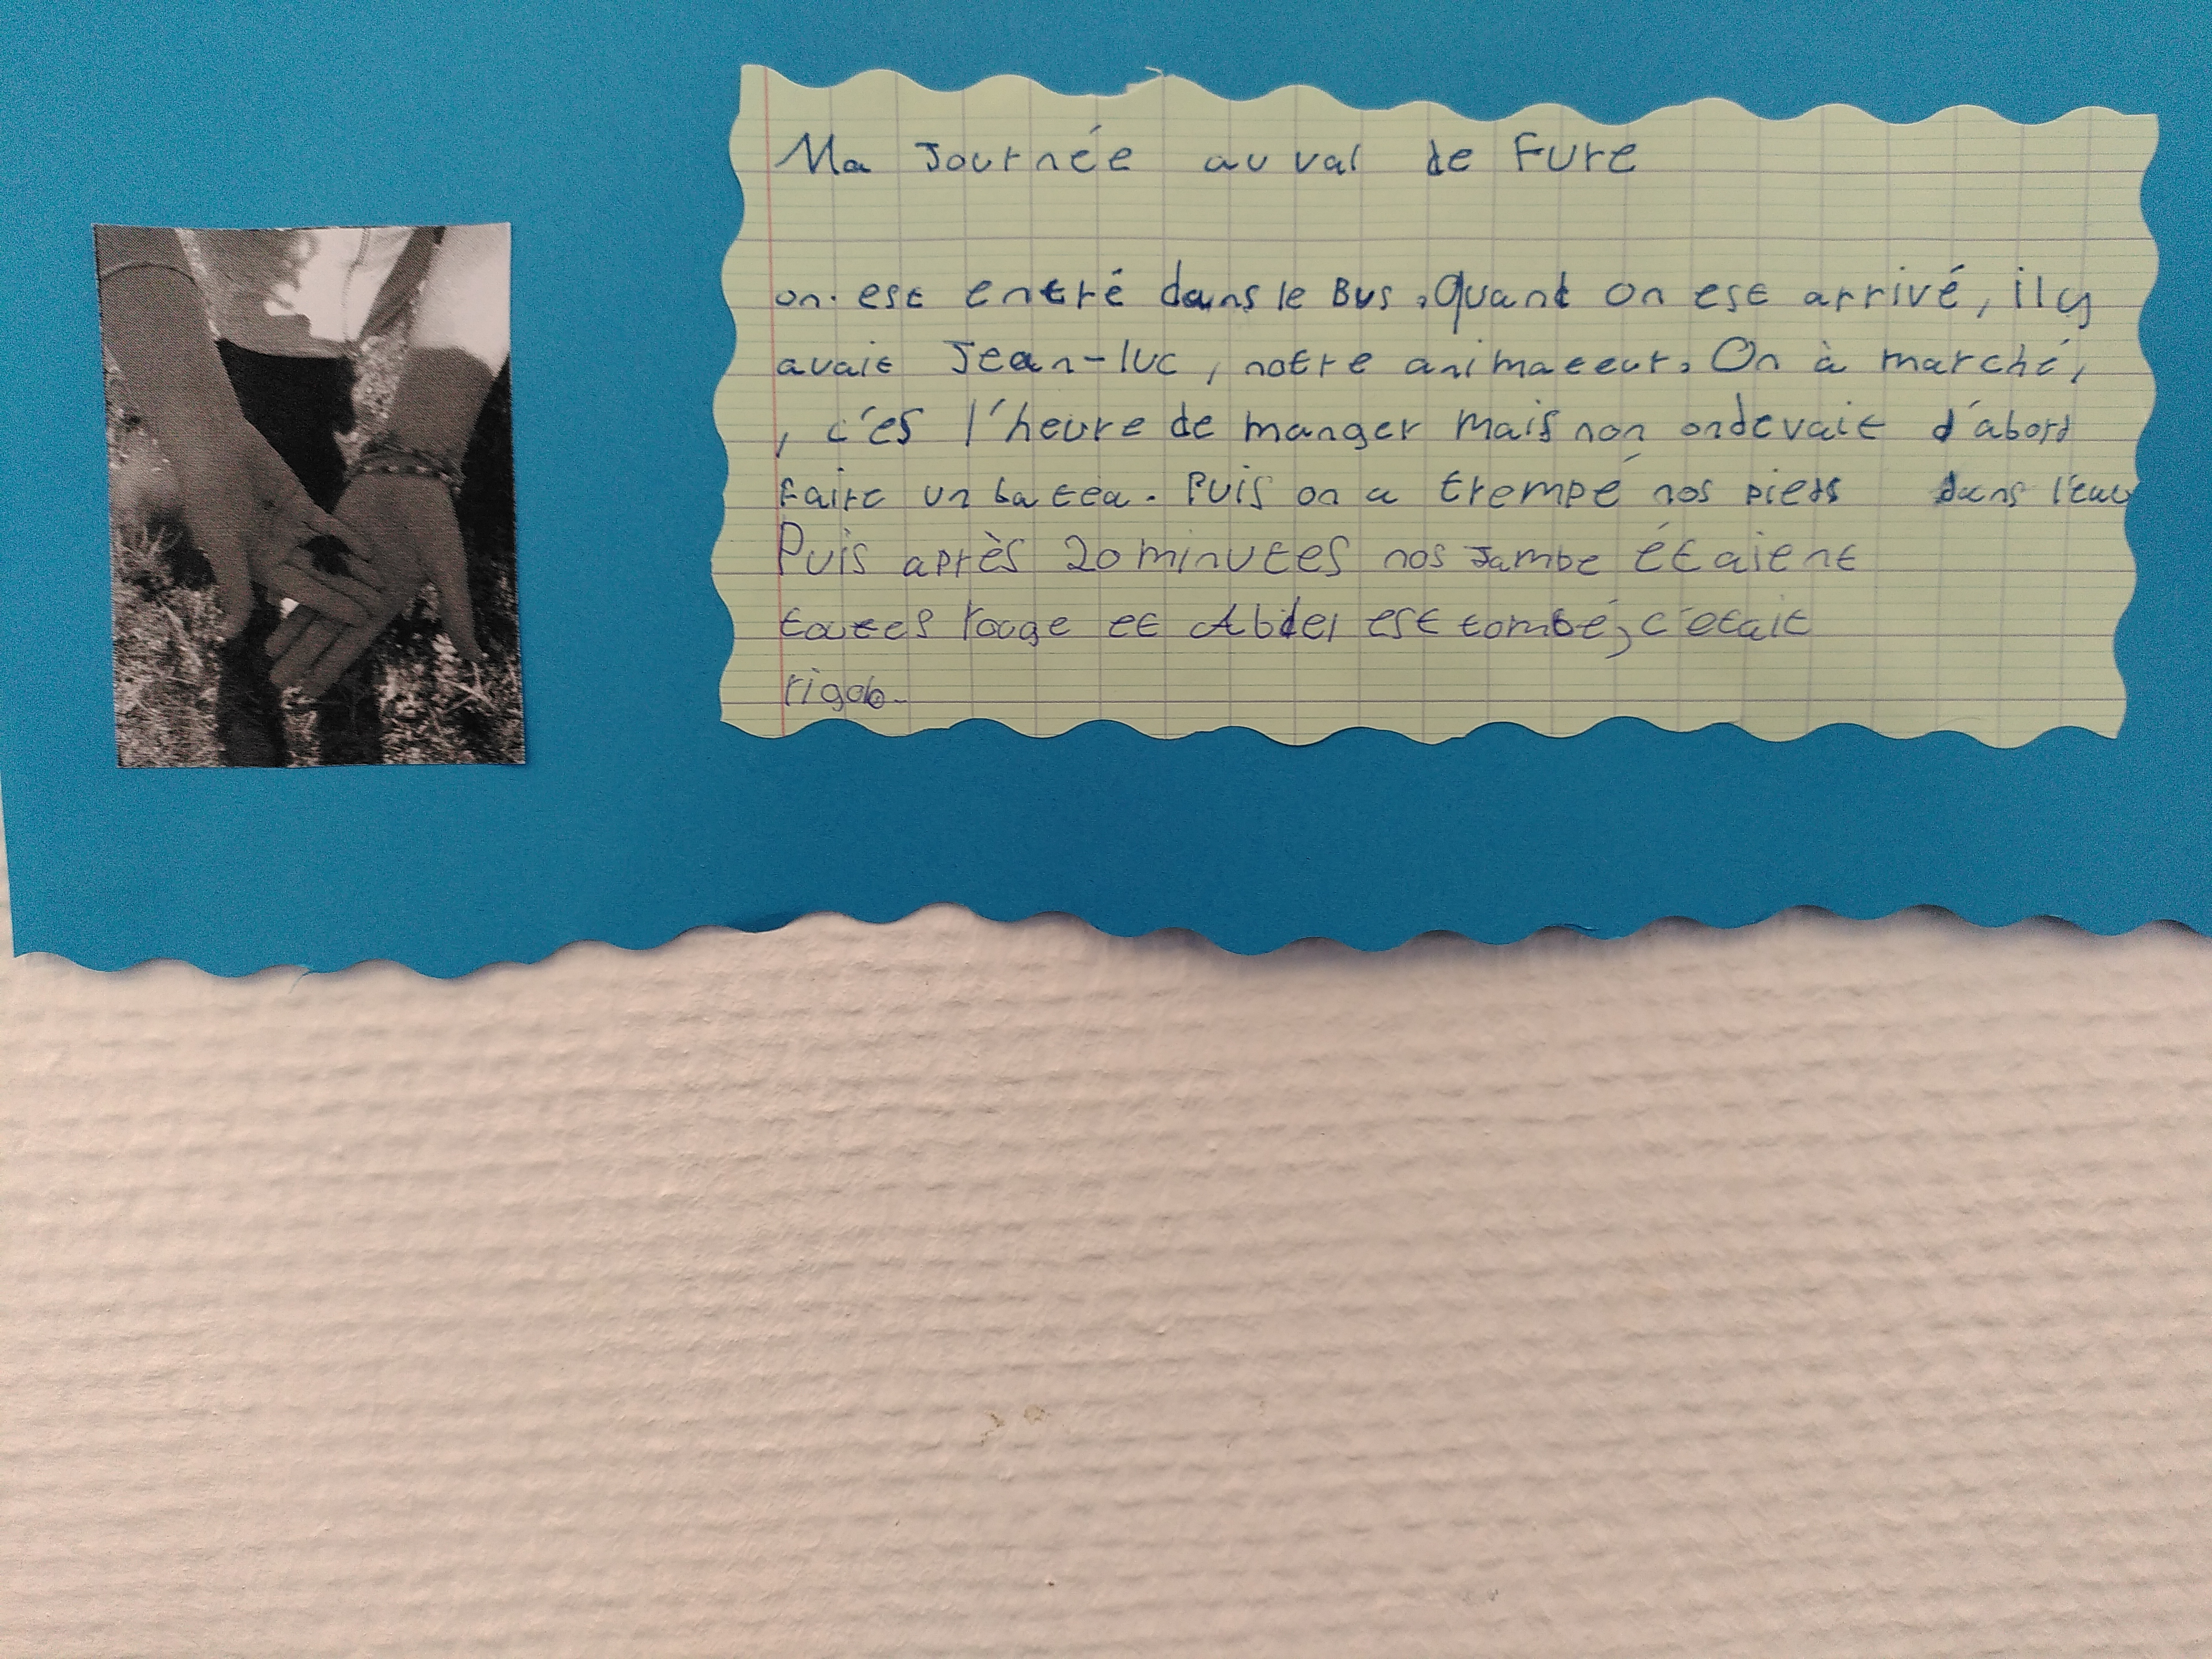 Ma Journée au val de Fure
on est entré dans le Bus. Quant on est arrivé, il y
avait Jean-luc, notre animateur. On à marché,
, c'es l'heure de manger mais non on devait d'abord
faire un batea. Puis on a trempé nos pieds dans l'eau
Puis après 20 minutes nos Jambe étaient
toutes rouge et Abdel est tombé, c'était
rigolo.